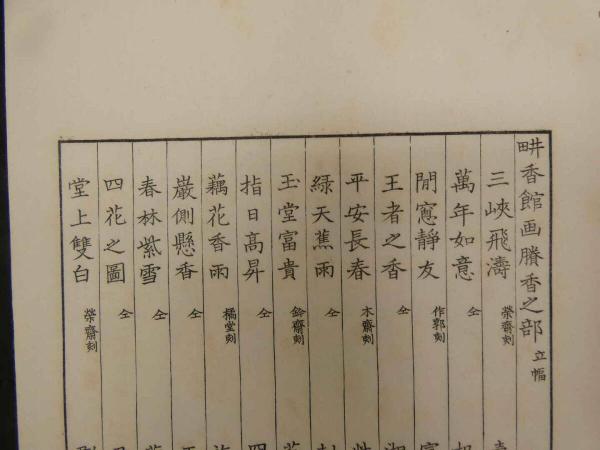 畊香館画賸香之部 立幅
三峽飛濤 榮齋刻
萬年如意 仝
閒窻靜友 作郭刻
王者之香 仝
平安長春 木齋刻
綠天蕉雨 仝
玉堂富貴 鈴齋刻
指日高昇 仝
藕花香雨 橘堂刻
巖側懸香 仝
春林紫雪 仝
四花之圖 仝
堂上雙白 榮齋刻